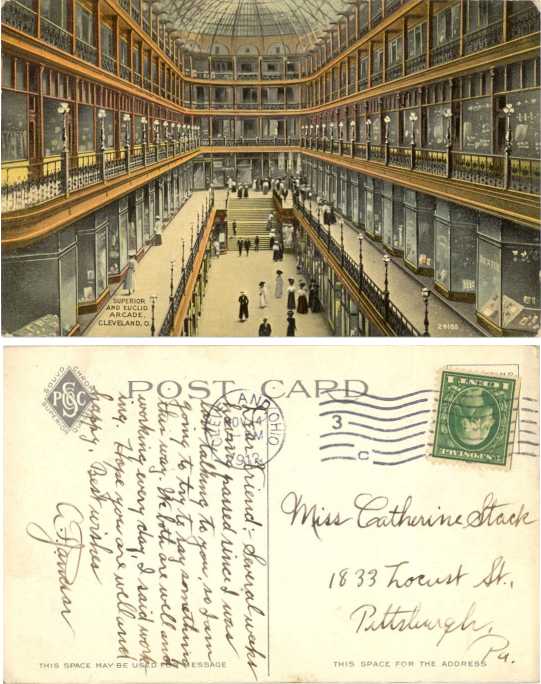 SUPERIOR
AND EUCLID
ARCADE,
CLEVELAND, O.
24166
POST CARD
CLEVELAND, OHIO
1912
3
C
1 CENT 1
U.S. POSTAGE
Dear Friend:- Several weeks
have passed since I was
last talking to you, so I am
going to try to say something
this way. We both are well and
working every day, I said work-
ing. Hope you are well and
happy. Best wishes
Miss Catherine Stack
1833 Locust St.,
Pittsburgh,
Pa.
THIS SPACE MAY BE USED FOR MESSAGE
THIS SPACE FOR THE ADDRESS